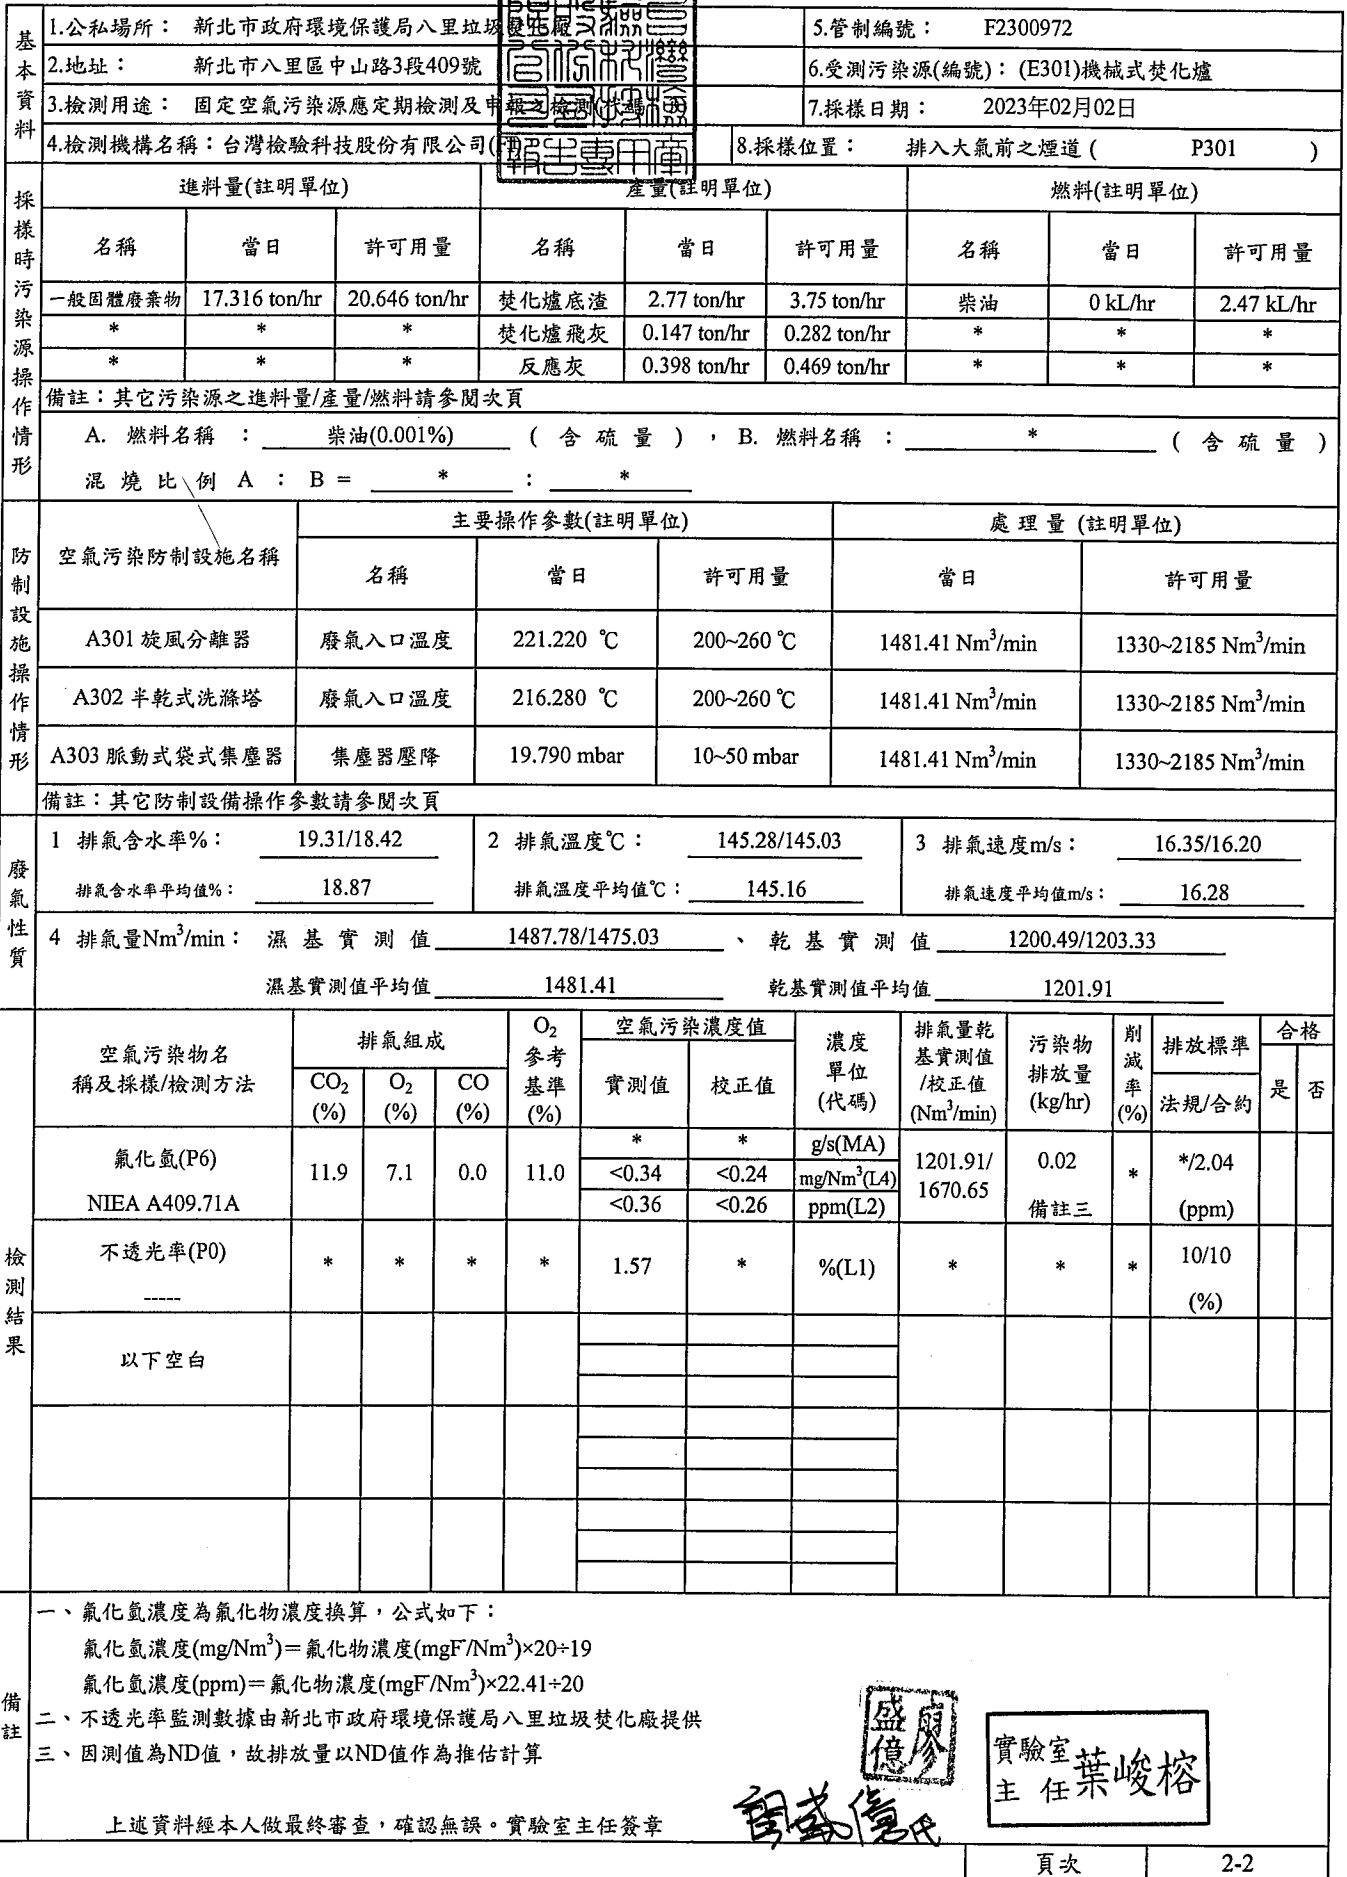 基本資料
1.公私場所： 新北市政府環境保護局八里垃圾焚化廠
5.管制編號： F2300972
2.地址： 新北市八里區中山路3段409號
6.受測污染源(編號)：(E301)機械式焚化爐
3.檢測用途： 固定空氣污染源應定期檢測及申報之檢測(代碼
7.採樣日期： 2023年02月02日
4.檢測機構名稱：台灣檢驗科技股份有限公司
8.採樣位置： 排入大氣前之煙道 ( P301 )
採樣時污染源操作情形
進料量(註明單位) 產量(註明單位) 燃料(註明單位)
名稱 當日 許可用量 名稱 當日 許可用量 名稱 當日 許可用量
一般固體廢棄物 17.316 ton/hr 20.646 ton/hr 焚化爐底渣 2.77 ton/hr 3.75 ton/hr 柴油 0 kL/hr 2.47 kL/hr
* * * 焚化爐飛灰 0.147 ton/hr 0.282 ton/hr * * *
* * * 反應灰 0.398 ton/hr 0.469 ton/hr * * *
備註：其它污染源之進料量/產量/燃料請參閱次頁
A. 燃料名稱 ： 柴油(0.001%) ( 含 硫 量 ) ， B. 燃料名稱 ： * ( 含 硫 量 )
混 燒 比 例 A ： B = * : *
防制設施操作情形
空氣污染防制設施名稱 主要操作參數(註明單位) 處 理 量 (註明單位)
名稱 當日 許可用量 當日 許可用量
A301 旋風分離器 廢氣入口溫度 221.220 ℃ 200~260 ℃ 1481.41 Nm³/min 1330~2185 Nm³/min
A302 半乾式洗滌塔 廢氣入口溫度 216.280 ℃ 200~260 ℃ 1481.41 Nm³/min 1330~2185 Nm³/min
A303 脈動式袋式集塵器 集塵器壓降 19.790 mbar 10~50 mbar 1481.41 Nm³/min 1330~2185 Nm³/min
備註：其它防制設備操作參數請參閱次頁
廢氣性質
1 排氣含水率%： 19.31/18.42 2 排氣溫度℃： 145.28/145.03 3 排氣速度m/s： 16.35/16.20
排氣含水率平均值%： 18.87 排氣溫度平均值℃： 145.16 排氣速度平均值m/s： 16.28
4 排氣量Nm³/min： 濕 基 實 測 值 1487.78/1475.03 、 乾 基 實 測 值 1200.49/1203.33
濕基實測值平均值 1481.41 乾基實測值平均值 1201.91
檢測結果
空氣污染物名稱及採樣/檢測方法 排氣組成 O₂參考基準(%) 空氣污染濃度值 濃度單位(代碼) 排氣量乾基實測值/校正值(Nm³/min) 污染物排放量(kg/hr) 削減率(%) 排放標準 合格
CO₂(%) O₂(%) CO(%) 實測值 校正值 法規/合約 是 否
氟化氫(P6) NIEA A409.71A 11.9 7.1 0.0 11.0 * * g/s(MA) 1201.91/1670.65 0.02 備註三 * */2.04 (ppm)
<0.34 <0.24 mg/Nm³(L4)
<0.36 <0.26 ppm(L2)
不透光率(P0) ----- * * * * 1.57 * %(L1) * * * 10/10 (%)
以下空白
備註
一、氟化氫濃度為氟化物濃度換算，公式如下：
氟化氫濃度(mg/Nm³)＝氟化物濃度(mgF⁻/Nm³)×20÷19
氟化氫濃度(ppm)＝氟化物濃度(mgF⁻/Nm³)×22.41÷20
二、不透光率監測數據由新北市政府環境保護局八里垃圾焚化廠提供
三、因測值為ND值，故排放量以ND值作為推估計算
廖盛億
實驗室主任 葉峻榕
上述資料經本人做最終審查，確認無誤。實驗室主任簽章
頁次 2-2